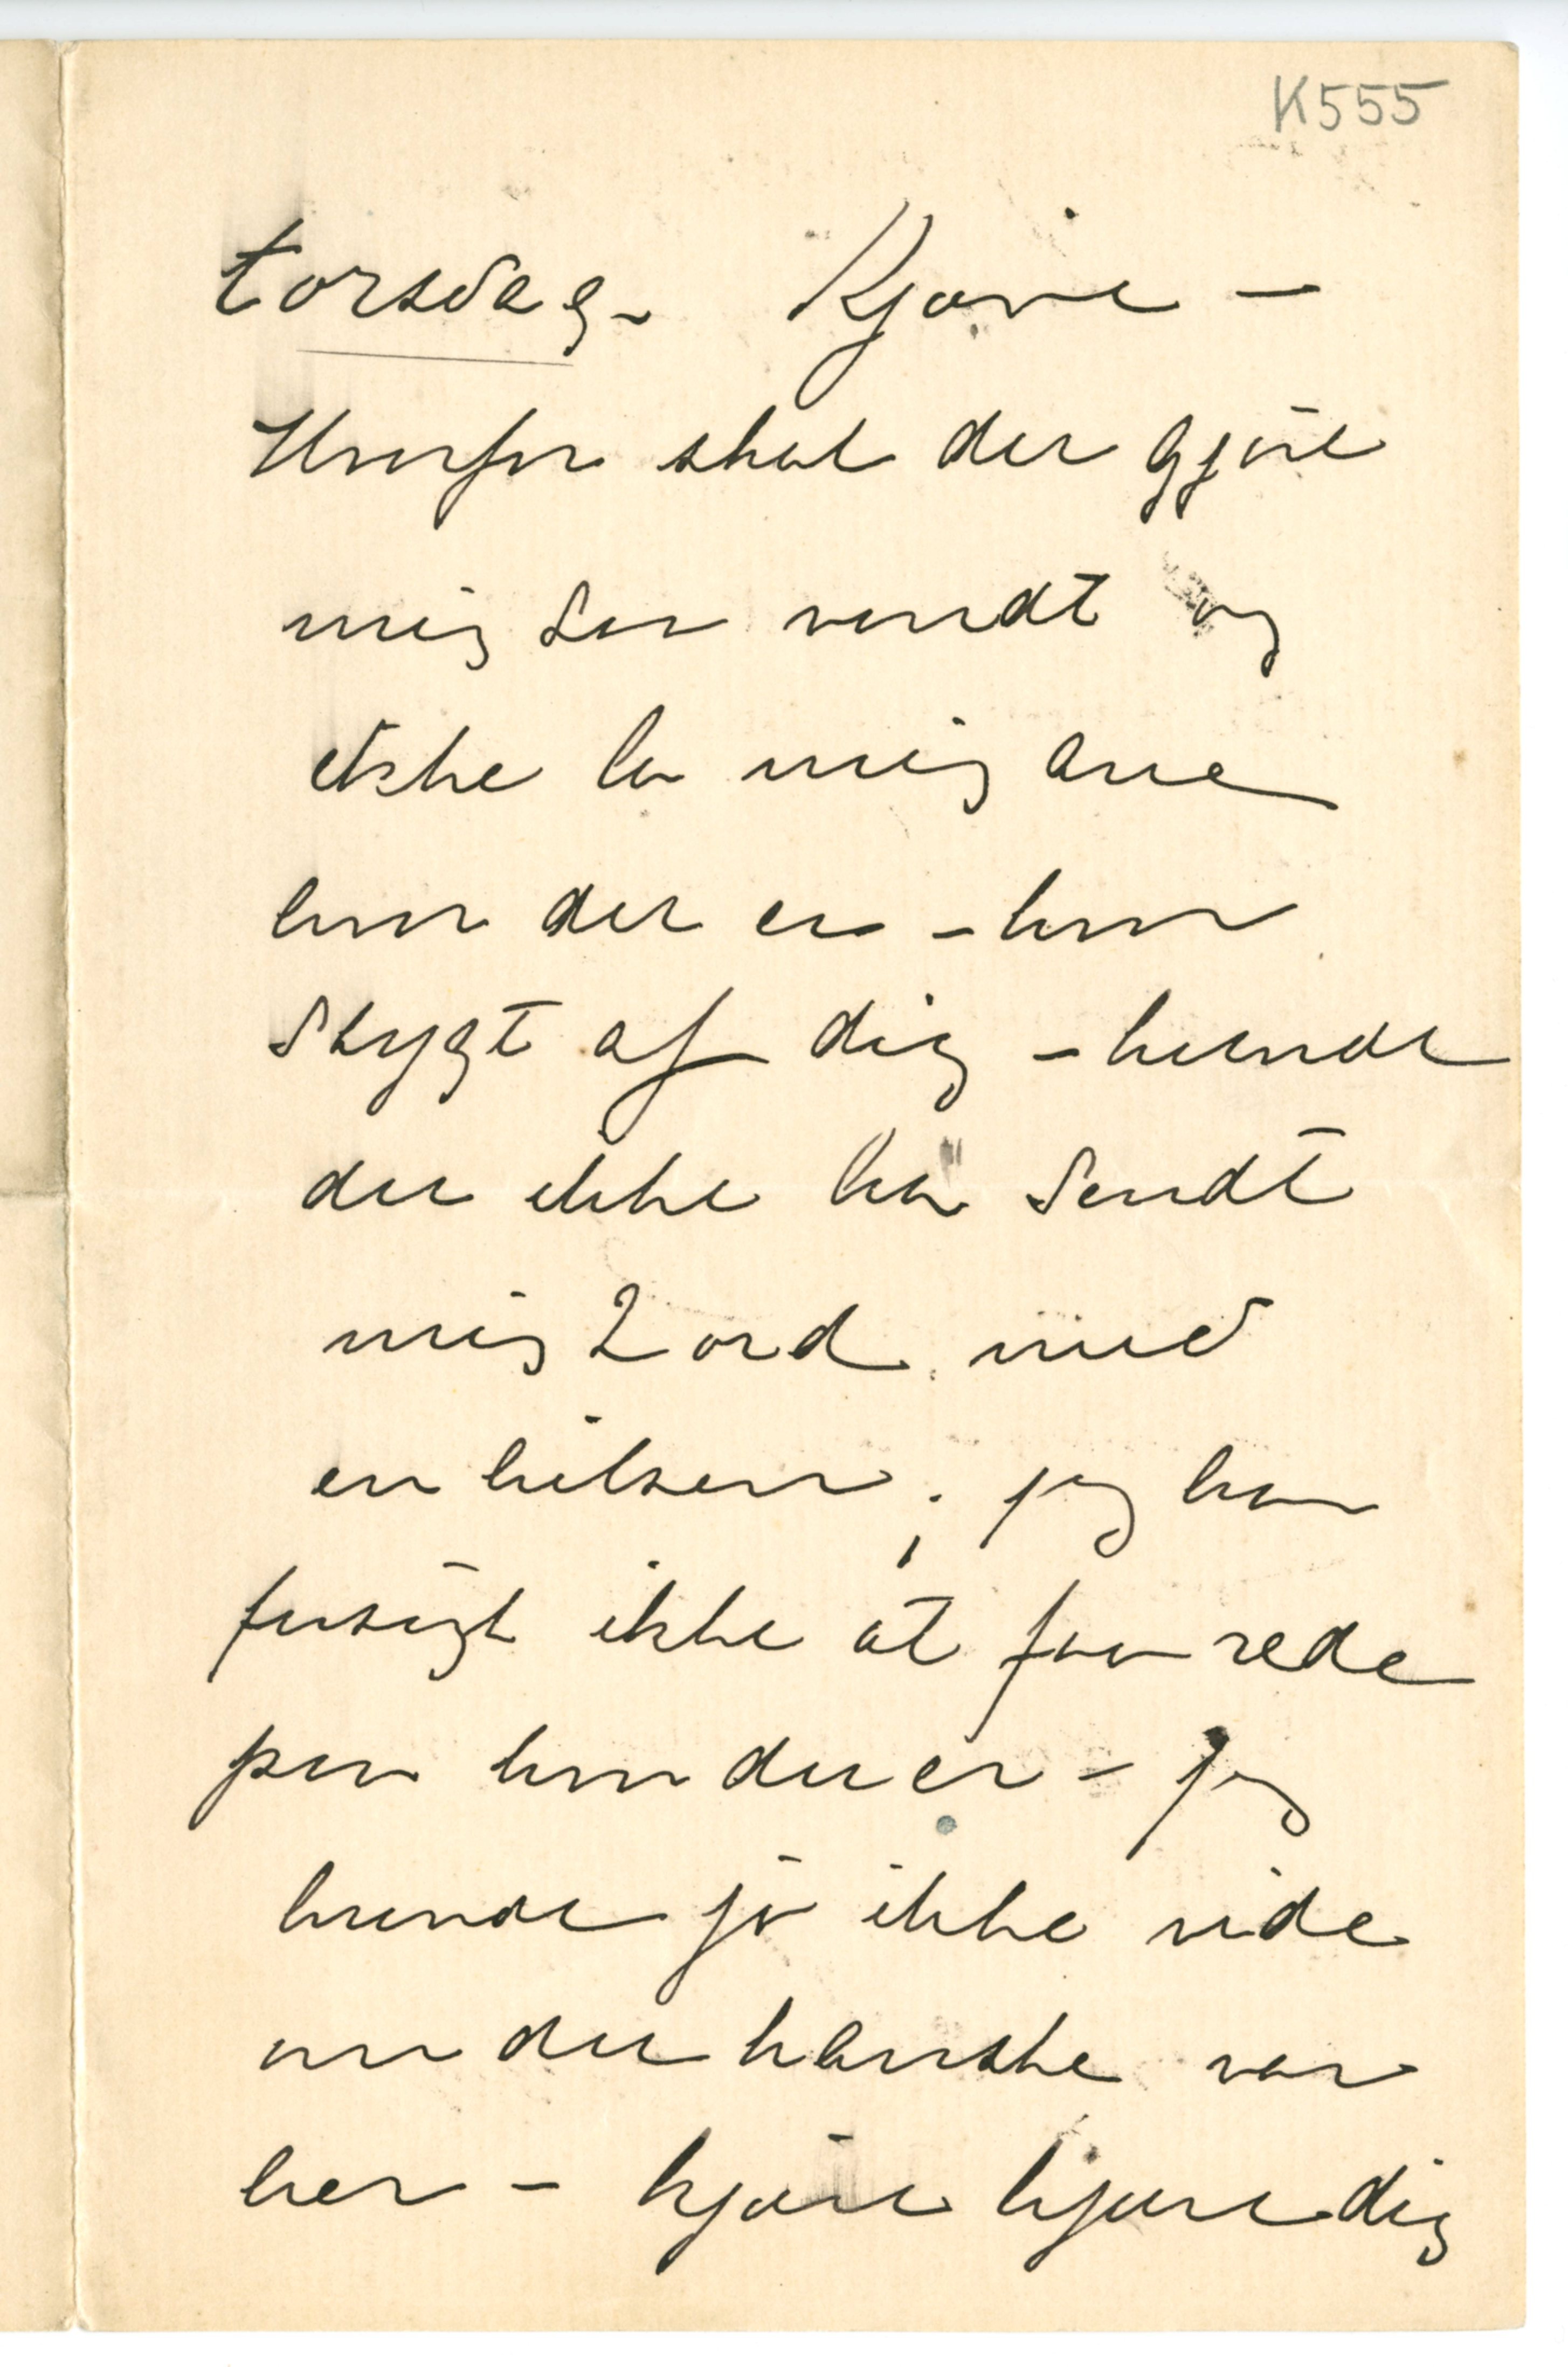 K555
torsdag – Kjære –
Hvorfor skal du gjøre
mig saa vondt og
ikke la mig ane
hvor du er – hvor
stygt af dig – kunde
du ikke ha sendt
mig 2 ord med
en hilsen; jeg har
forsøgt ikke at faa rede
paa hvor du er – jeg
kunde jo ikke vide
om du kanske var
her – kjære kjære dig